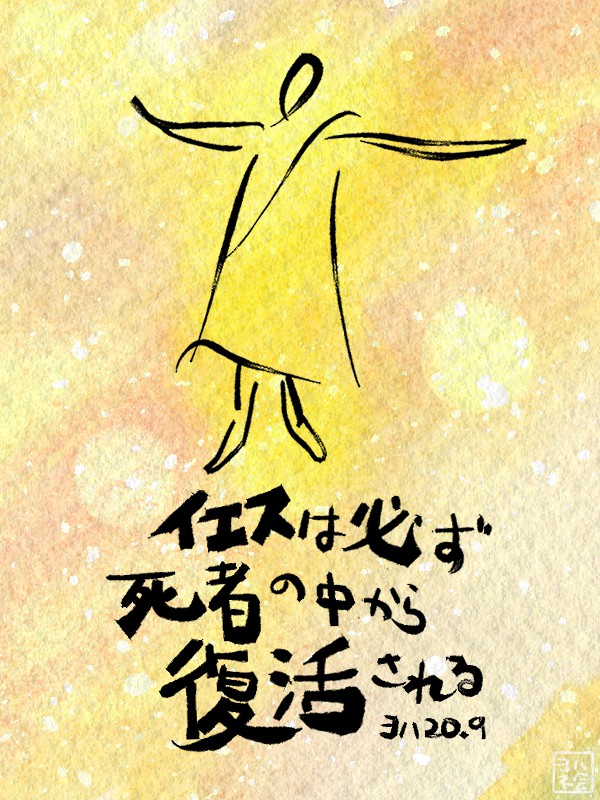 イエスは必ず
死者の中から
復活される
ヨハ20.9